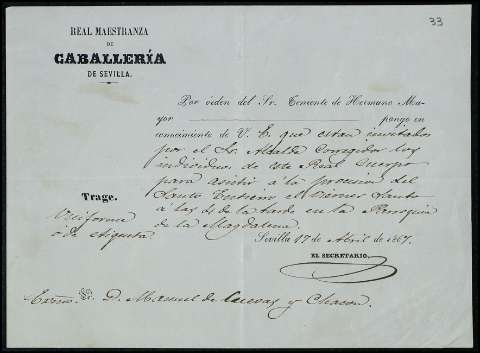 33
REAL MAESTRANZA
DE
CABALLERÍA
DE SEVILLA.
Por órden del Sr. Teniente de Hermano Ma-
yor pongo en
conocimiento de V. E. que estan invitados
por el Sr. Alcalde Corregidor los
individuos de este Real Cuerpo
para asistir á la procesion del
Santo Entierro el Viernes Santo
á las de la tarde en la Parroquia
de la Magdalena.
Trage.
Uniforme
ó de etiqueta
Sevilla 17 de Abril de 1867.
EL SECRETARIO.
Excmo. Sr. D. Manuel de Cuevas y Chacon.